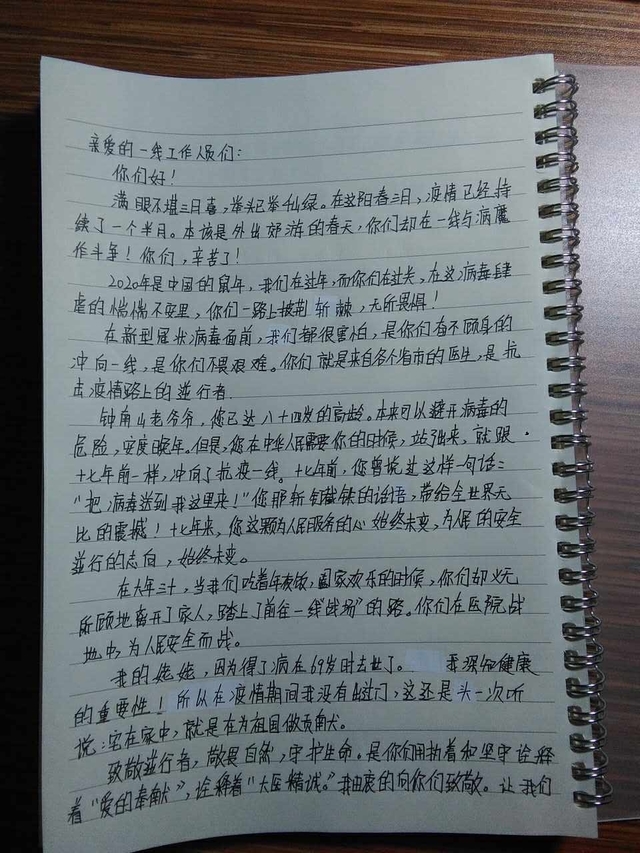 亲爱的一线工作人员们:
你们好!
满眼不堪三月喜,举头已举仙绿。在这阳春三月,疫情已经持
续了一个半月。本该是外出郊游的春天,你们却在一线与病魔
作斗争!你们,辛苦了!
2020年是中国的鼠年,我们在过年,而你们在过关,在这病毒肆
虐的惴惴不安里,你们一路上披荆斩棘,无所畏惧!
在新型冠状病毒面前,我们都很害怕,是你们奋不顾身的
冲向一线,是你们不畏艰难。你们就是来自各个省市的医生,是抗
击疫情路上的逆行者.
钟南山老爷爷,您已达八十四岁的高龄。本来可以避开病毒的
危险,安度晚年。但是,您在中华人民需要你的时候,站出来,就跟
十七年前一样,冲向了抗疫一线。十七年前,您曾说过这样一句话:
"把病毒送到我这里来!"您那斩钉截铁的话语,带给全世界无
比的震撼!十七年来,您这颗为人民服务的心始终未变,为人民的安全
逆行的志向,始终未变。
在大年三十,当我们吃着年夜饭,阖家欢乐的时候,你们却义无
所顾地离开了家人,踏上了前往一线"战场"的路。你们在医院战
地中,为人民安全而战。
我的姥姥,因为得了病在69岁时去世了。我深知健康
的重要性!所以在疫情期间我没有出过门,这还是头一次听
说:宅在家中,就是在为祖国做贡献。
致敬逆行者,敬畏自然,守护生命。是你们用执着和坚守诠释
着"爱的奉献",诠释着"大医精诚。"我由衷的向你们致敬。让我们